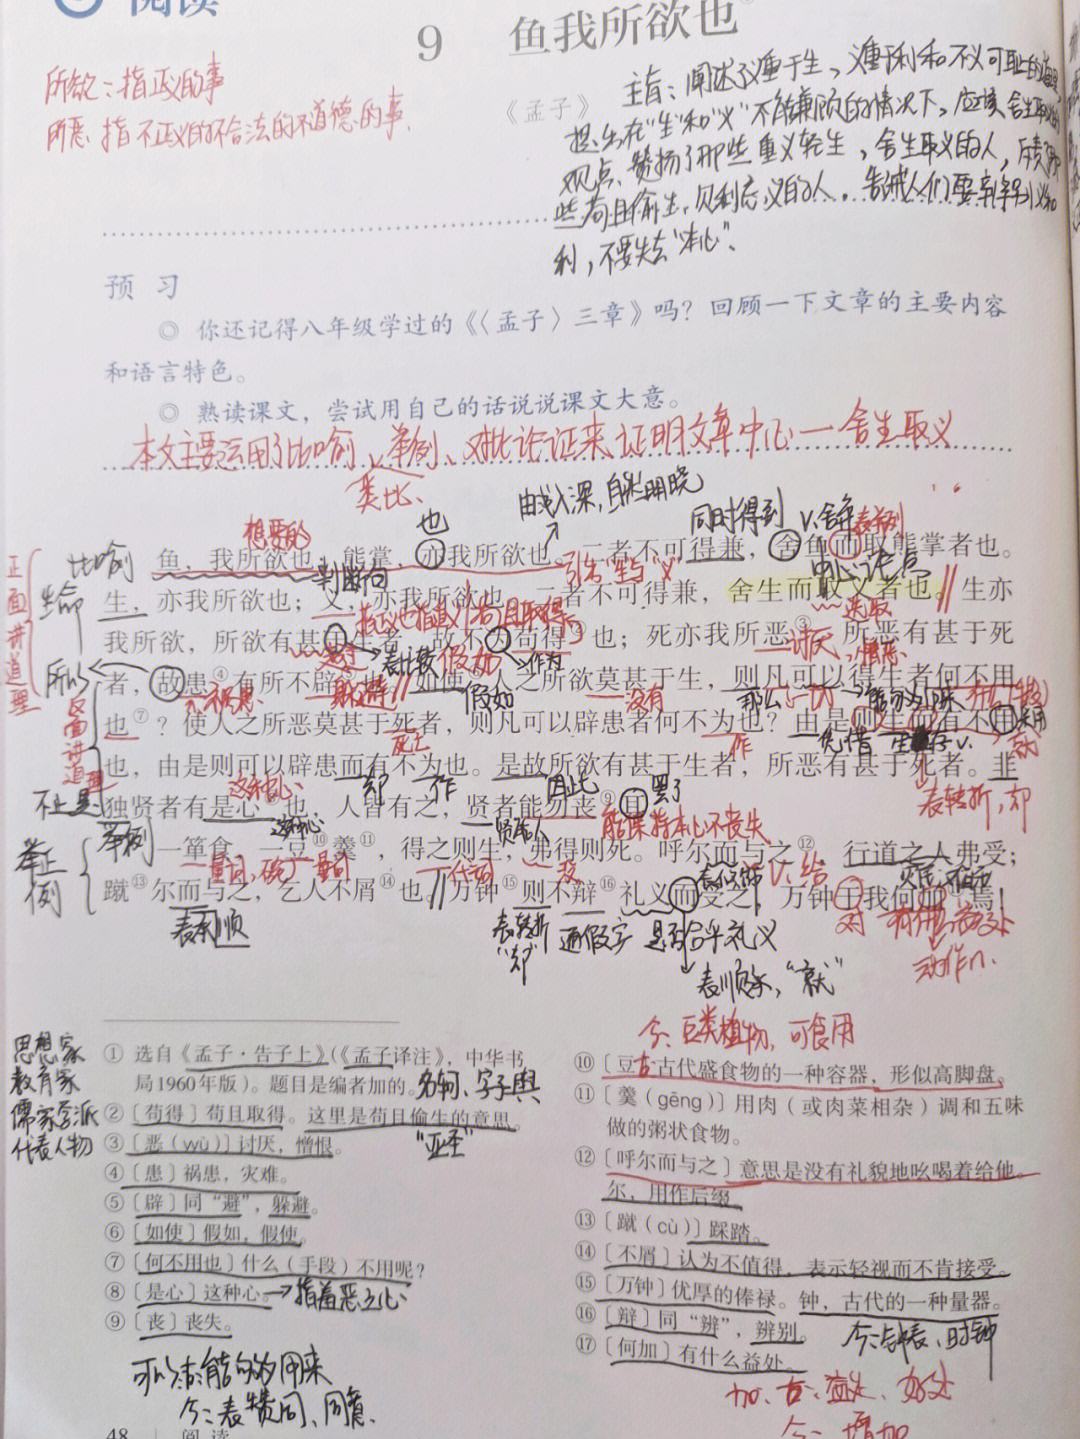 阅读
9 鱼我所欲也
《孟子》
所欲：指正义的事
所恶：指不正义的不合法的不道德的事.
主旨：阐述了义重于生，义重于利和不义可耻的道理,
提出在“生”和“义”不能兼顾的情况下，应该舍生取义的
观点、赞扬了那些重义轻生，舍生取义的人，斥责了那
些苟且偷生，见利忘义的人。告诫人们要辨别义和
利，不要失去“本心”.
预 习
◎ 你还记得八年级学过的《〈孟子〉三章》吗？回顾一下文章的主要内容
和语言特色。
◎ 熟读课文，尝试用自己的话说说课文大意。
本文主要运用了比喻、举例、对比论证来证明文章中心—舍生取义
类比、
由浅入深，自然明晓
同时得到
V.舍弃
想要的
也
比喻
鱼，我所欲也，熊掌，亦我所欲也，二者不可得兼，舍鱼而取熊掌者也。
判断句
引出“生与“义”
中心论点
生命
生，亦我所欲也；义，亦我所欲也，二者不可得兼，舍生而取义者也。生亦
选取
正面讲道理
我所欲，所欲有甚于生者，故不为苟得③也；死亦我所恶，所恶有甚于死
表比较
作为
讨厌，憎恶.
所以
者，故患④有所不辟⑤也。如使⑥人之所欲莫甚于生，则凡可以得生者何不用
祸患
躲避
假如
没有
反面讲道理
也⑦？使人之所恶莫甚于死者，则凡可以辟患者何不为也？由是则生而有不用
死亡
作
凭借
也，由是则可以辟患而有不为也。是故所欲有甚于生者，所恶有甚于死者。非
却
作
因此
表转折，却
不止是
独贤者有是心⑧也，人皆有之，贤者能勿丧⑨耳。
这种心
贤能人
罢了
能保持本心不丧失
举例
举正例
一箪食，一豆⑩羹⑪，得之则生，弗得则死。呼尔而与之⑫，行道之人弗受；
量词
量词
代词
没
V.给
蹴⑬尔而与之，乞人不屑⑭也。万钟⑮则不辩⑯礼义而受之，万钟于我何加⑰焉！
表承顺
表转折“却”
通假字
是否合乎礼义
对
表顺承，“就”
动作n.
今：豆类植物，可食用
思想家
教育家
儒家学派
代表人物
① 选自《孟子·告子上》（《孟子译注》，中华书
局1960年版）。题目是编者加的。名轲、字子舆
“亚圣”
②〔苟得〕苟且取得。这里是苟且偷生的意思。
③〔恶（wù）〕讨厌，憎恨。
④〔患〕祸患，灾难。
⑤〔辟〕同“避”，躲避。
⑥〔如使〕假如，假使。
⑦〔何不用也〕什么（手段）不用呢？
⑧〔是心〕这种心。→指羞恶之心
⑨〔丧〕丧失。
可以：古：能够用来
今：表赞同、同意.
⑩〔豆〕古代盛食物的一种容器，形似高脚盘。
⑪〔羹（gēng）〕用肉（或肉菜相杂）调和五味
做的粥状食物。
⑫〔呼尔而与之〕意思是没有礼貌地吆喝着给他。
尔，用作后缀。
⑬〔蹴（cù）〕踩踏。
⑭〔不屑〕认为不值得，表示轻视而不肯接受。
⑮〔万钟〕优厚的俸禄。钟，古代的一种量器。
⑯〔辩〕同“辨”，辨别。
今：钟表、时钟
⑰〔何加〕有什么益处。
加：古：益处、好处
今：增加
48 | 阅 读